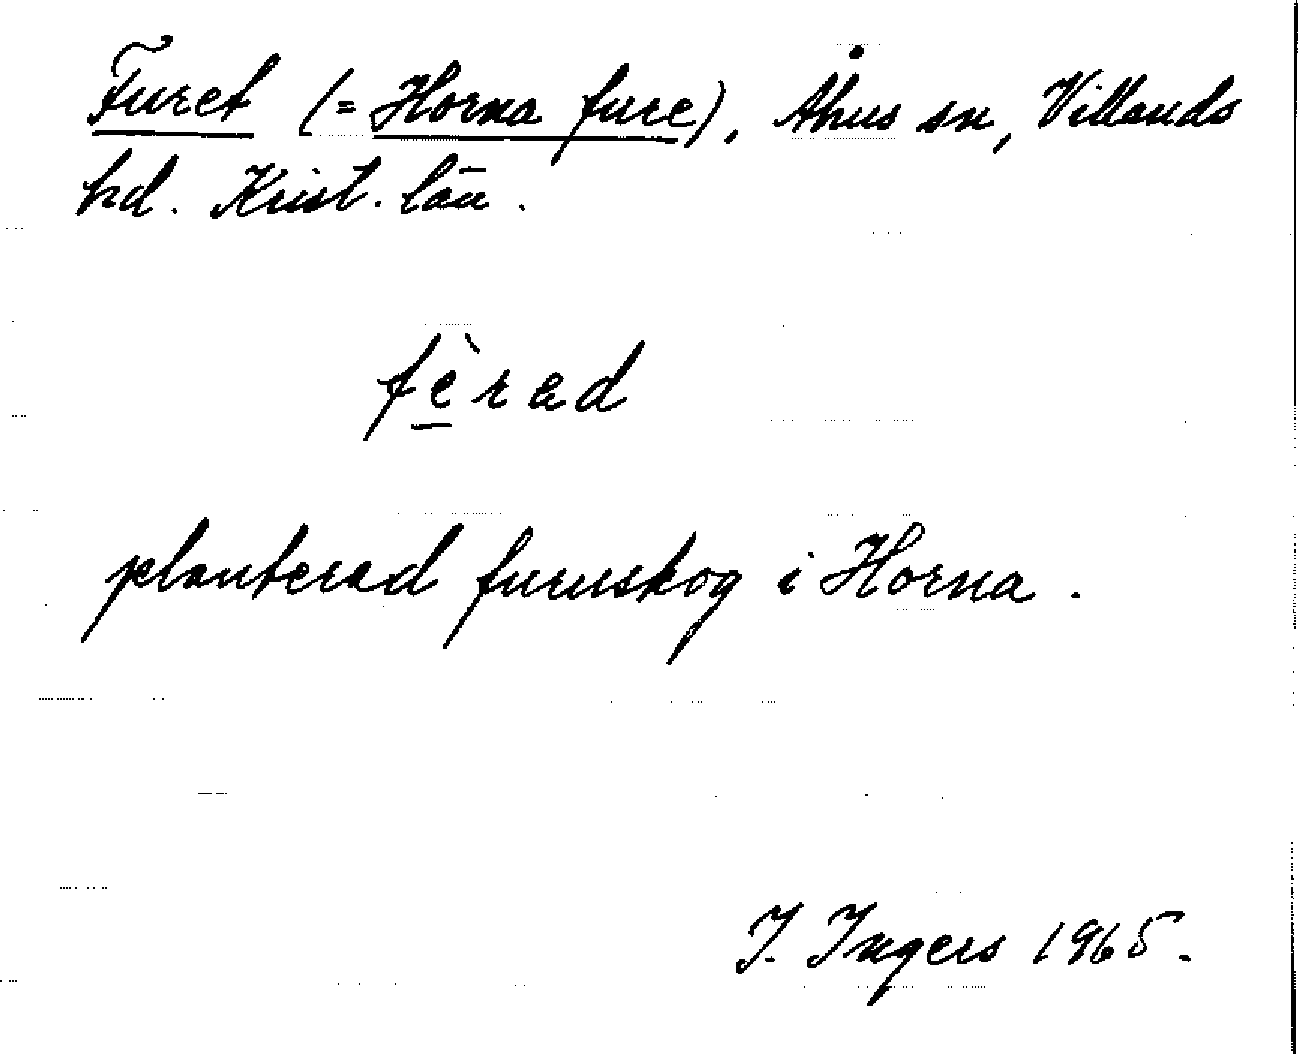 Furet (= Horna fure), Åhus sn, Villands
hd. Krist. län.
fèrad
planterad furuskog i Horna.
I. Ingers 1965.